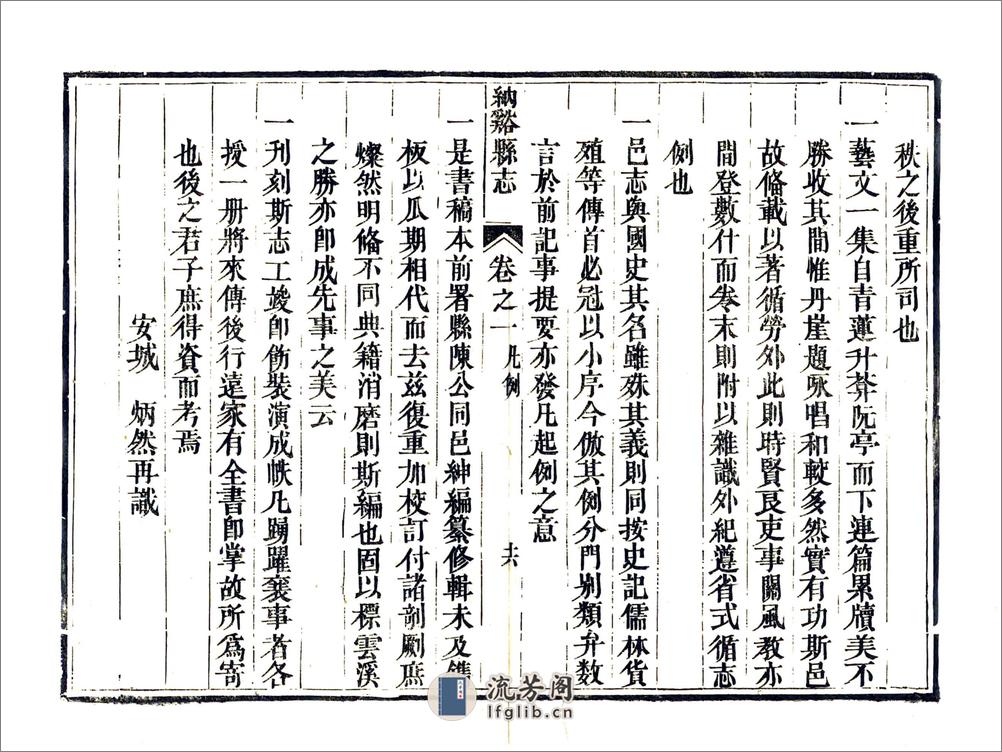 秩之後重所司也
一藝文一集自青蓮升菴阮亭而下連篇累牘美不
勝收其間惟丹崖題咏唱和較多然實有功斯邑
故偹載以著循勞外此則時賢良吏事關風教亦
間登數什而卷末則附以雜識外紀遵省式循志
例也
一邑志與國史其名雖殊其義則同按史記儒林貨
殖等傳首必冠以小序今倣其例分門别類弁数
言於前記事提要亦發凡起例之意
納谿縣志
卷之一
凡例
十六
一是書稿本前署縣陳公同邑紳編纂修輯未及鐫
板以瓜期相代而去兹復重加校訂付諸剞劂庶
燦然明偹不同典籍消磨則斯編也固以標雲溪
之勝亦卽成先事之美云
一刋刻斯志工竣卽飭裝演成帙凡踴躍襄事者各
授一册將來傳後行遠家有全書卽掌故所爲寄
也後之君子庶得資而考焉
安城　炳然再識
流芳阁
lfglib.cn